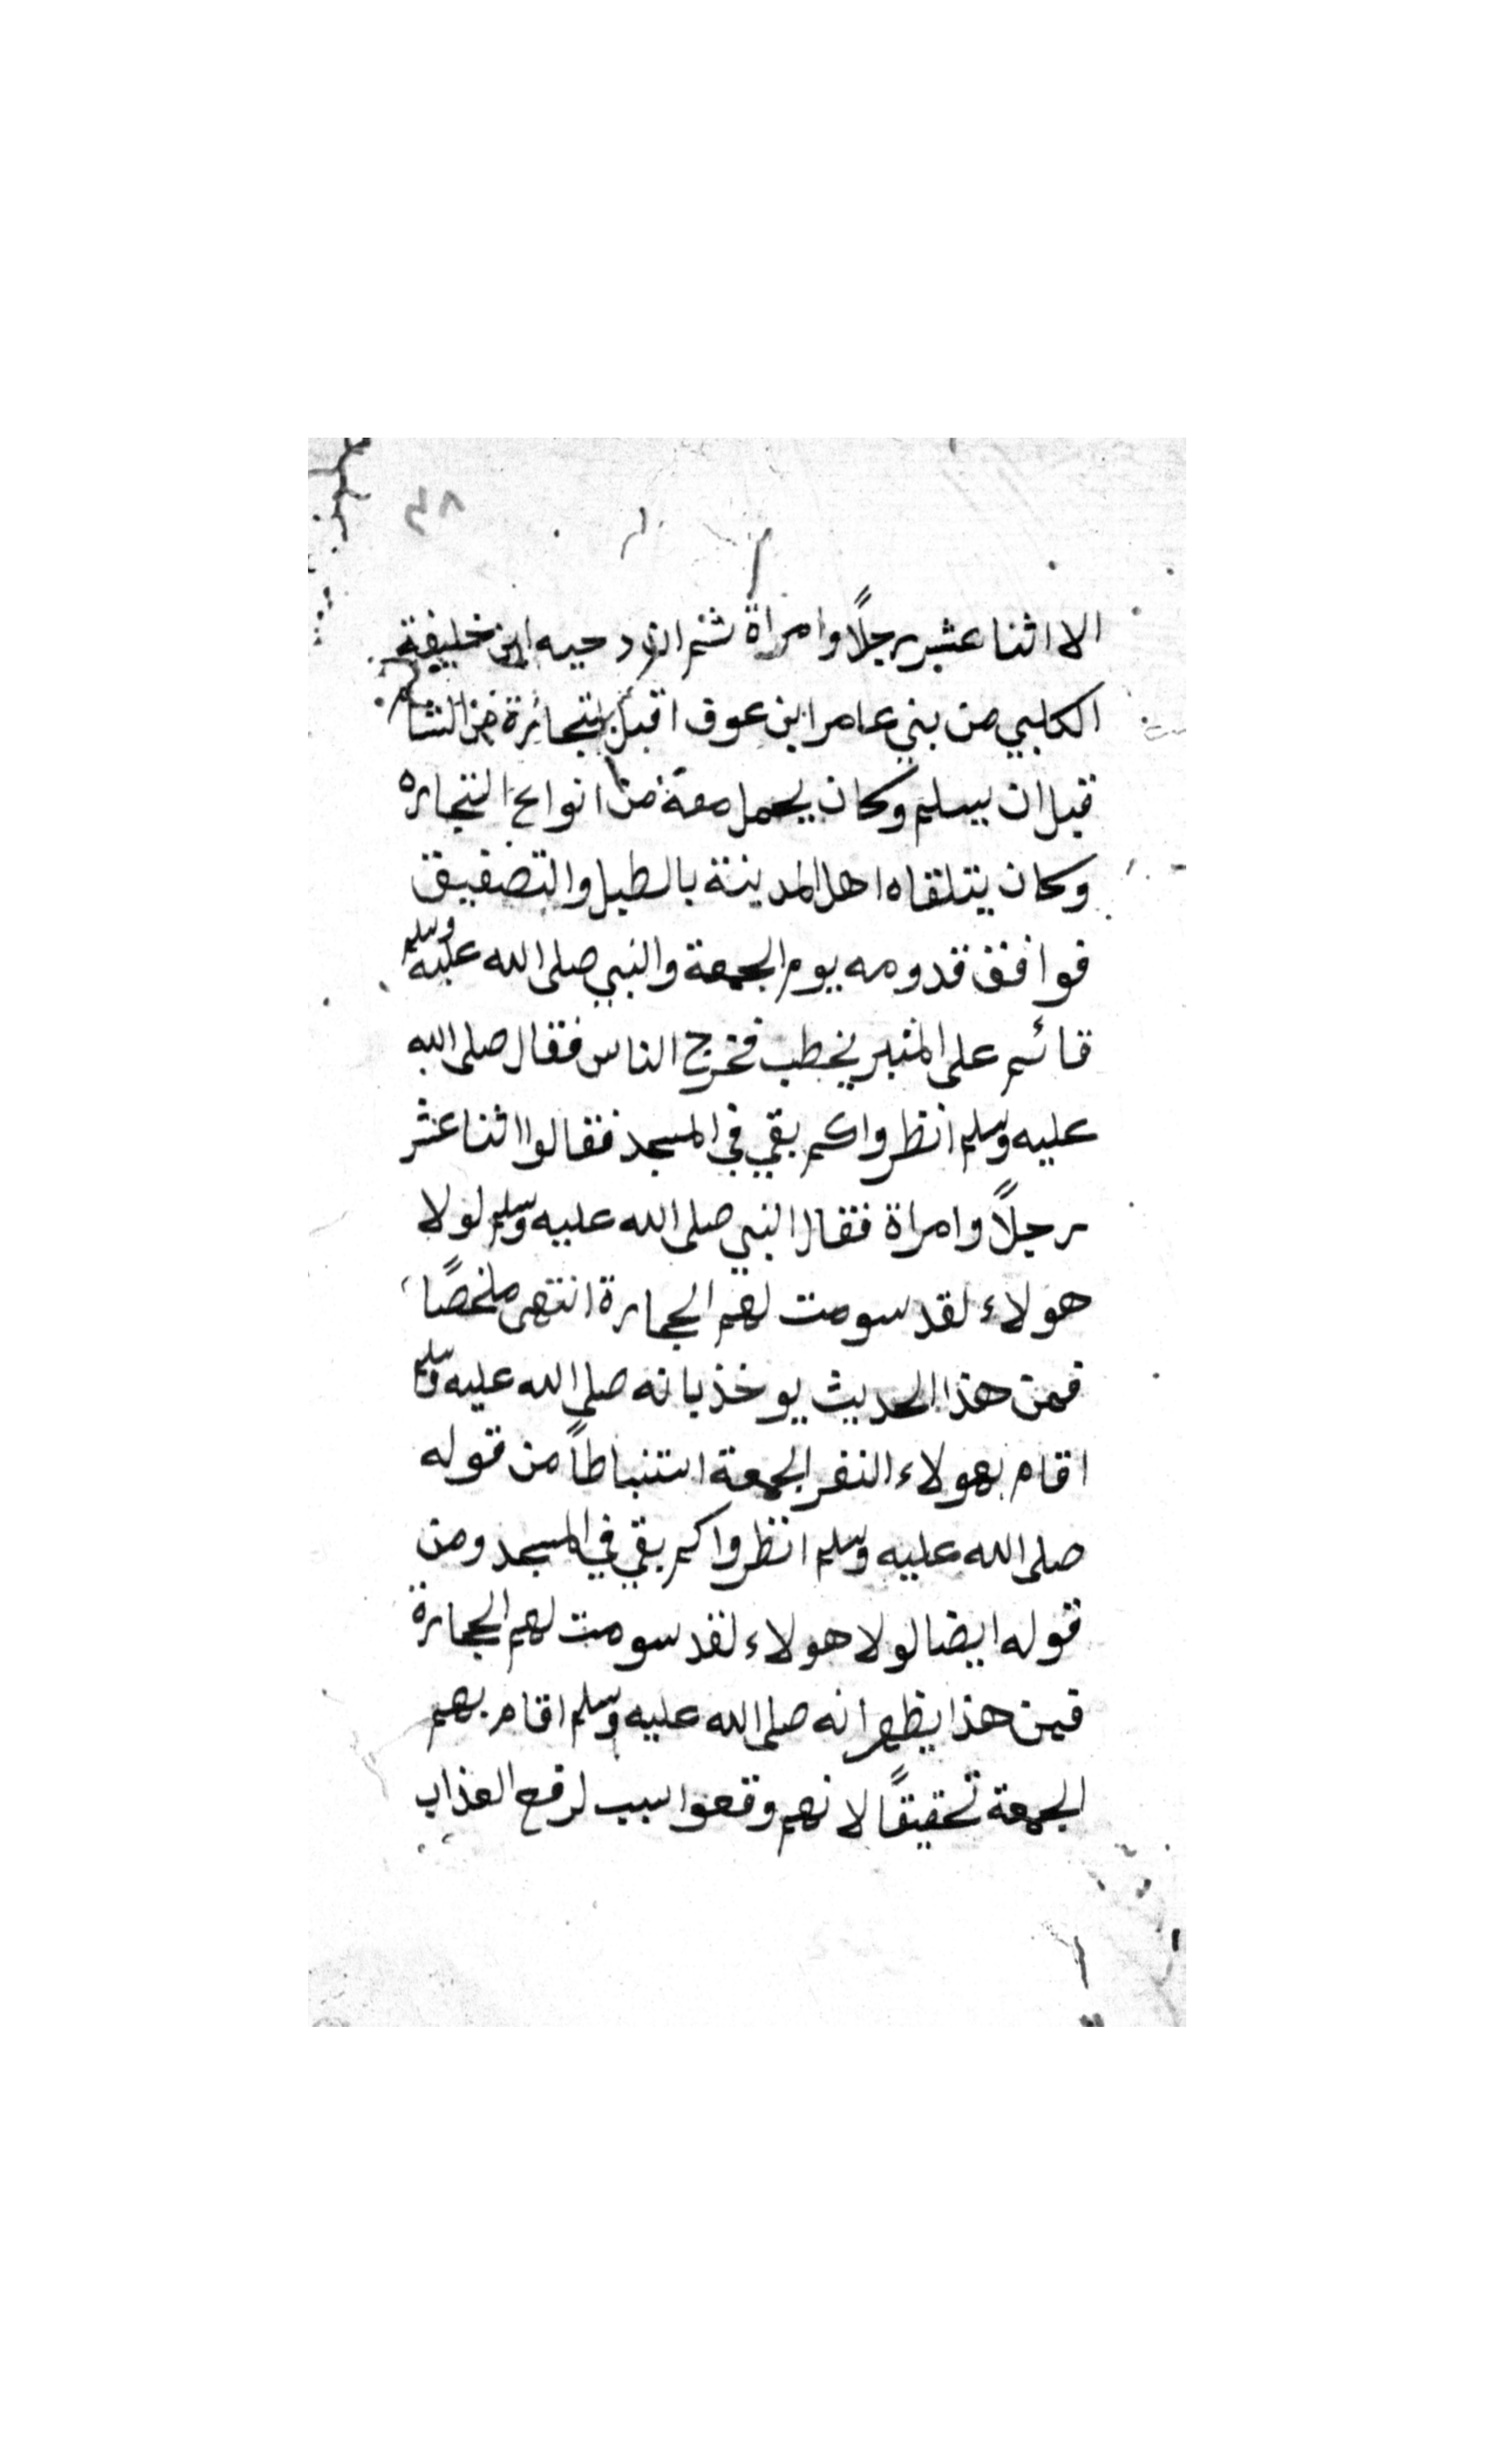 الا اثنا عشر رجلًا وامراة ثم ان دحيه ابن خليفة
الكلبي من بني عامر ابن عوف اقبل بتجارة من الشام
قبل ان يسلم وكان يحمل معه من انواع التجاره
وكان يتلقاه اهل المدينة بالطبل والتصفيق
فوافق قدومه يوم الجمعة والنبي صلى الله عليه وسلم
قائم على المنبر يخطب فخرج الناس فقال صلى الله
عليه وسلم انظروا كم بقي في المسجد فقالوا اثنا عشر
رجلًا وامراة فقال النبي صلى الله عليه وسلم لولا
هولاء لقد سومت لهم الحجارة انتهى ملخصًا
فمن هذا الحديث يوخذ بانه صلى الله عليه وسلم
اقام بهولاء النفر الجمعة استنباطاً من قوله
صلى الله عليه وسلم انظروا كم بقي في المسجد ومن
قوله ايضا لولا هولاء لقد سومت لهم الحجارة
فمن هذا يظهر انه صلى الله عليه وسلم اقام بهم
الجمعة تحقيقًا لانهم وقعوا سبب لرفع العذاب